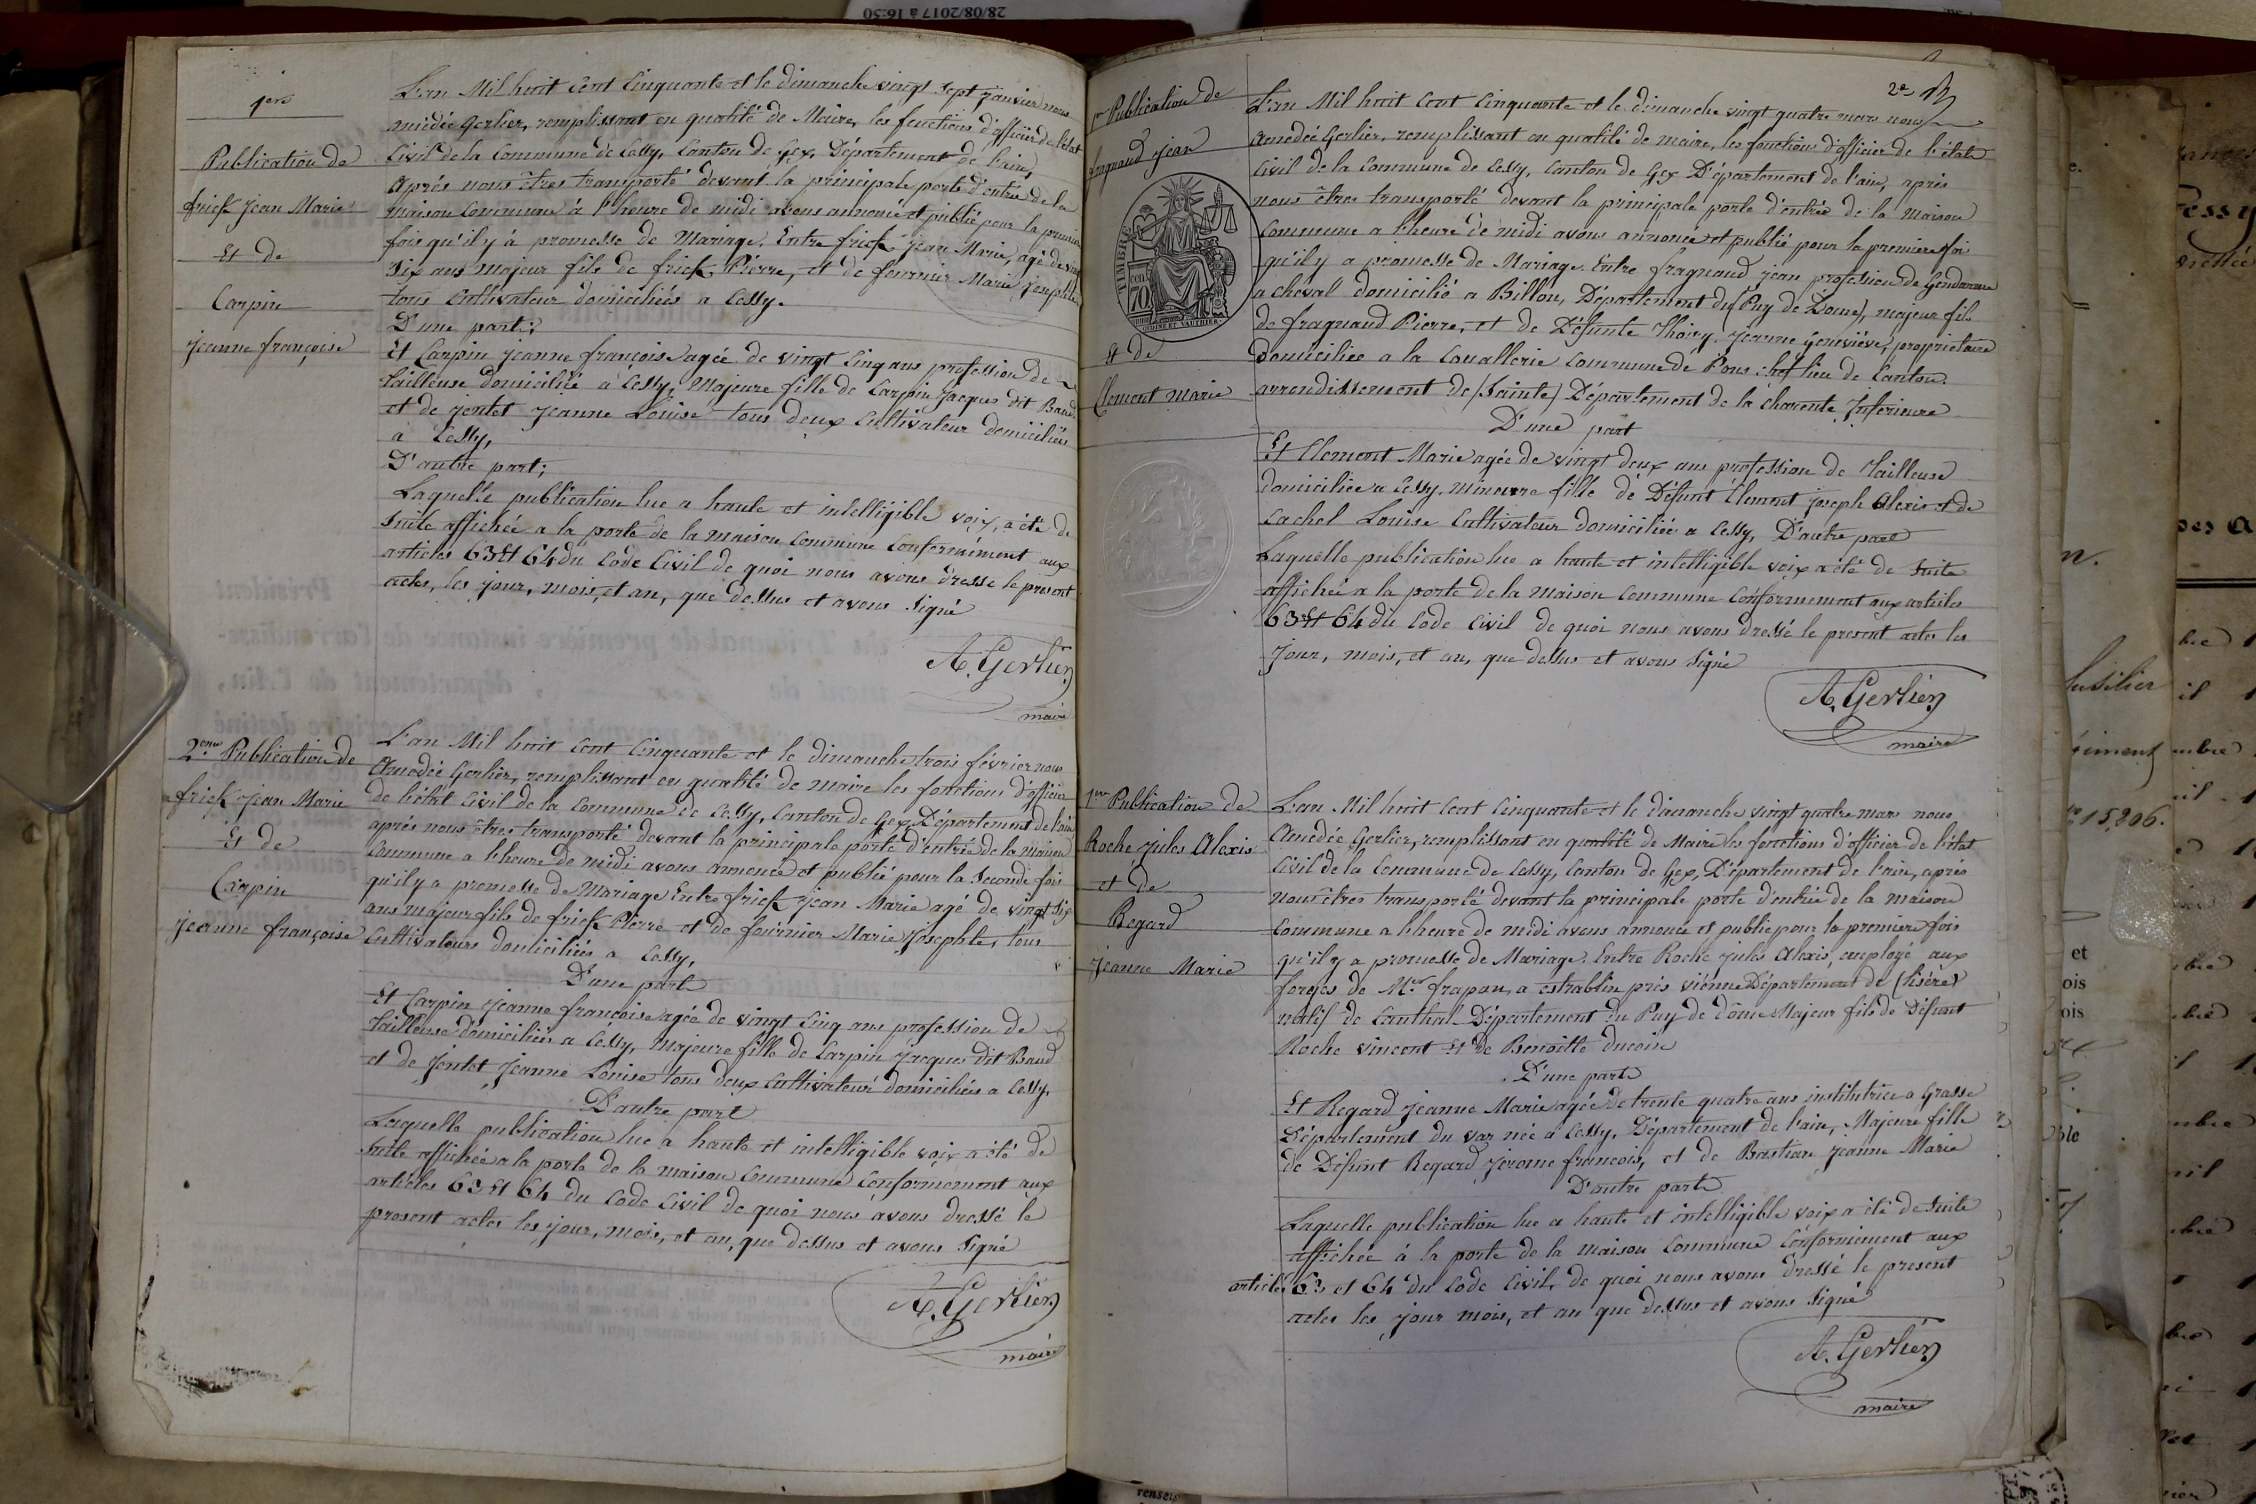 28/08/2017 à 16:50
1ere
Publication de
frick Jean Marie
Et de
Carpin
Jeanne françoise
L'an Mil huit Cent Cinquante et le dimanche vingt Sept janvier nous
amédée Gerlier, remplissant en qualité de Maire, les fonctions d'officier de l'état
Civil de la Commune de Cessy, Canton de Gex, Département de l'ain,
Après nous êtres transporté devant la principale porte d'entrée de la
maison Commune à l'heure de midi avons annoncé et publié pour la premiere
fois qu'il y à promesse de Mariage. Entre frick Jean Marie, agé de vingt
Six ans majeur fils de frick Pierre, et de fournier Marie Josephte
tous Cultivateur domiciliés a Cessy.
D'une part;
Et Carpin Jeanne françoise agée de vingt Cinq ans profession de
Tailleuse domiciliée à Cessy, Majeure fille de Carpin Jacques dit Baud
et de Jentet Jeanne Louise tous deux Cultivateur domiciliés
a Cessy,
D'autre part;
Laquelle publication lue a haute et intelligible voix, a été de
Suite affichée a la porte de la maison Commune Conformément aux
articles 63 Et 64 du Code Civil de quoi nous avons dressé le present
actes, les jour, mois, et an, que dessus et avons Signé
A. Gerlier
maire
2eme Publication de
frick Jean Marie
Et de
Carpin
Jeanne françoise
L'an Mil huit Cent Cinquante et le dimanche trois février nous
Amédée Gerlier, remplissant en qualité de maire les fonctions d'officier
de l'état Civil de la Commune de Cessy, Canton de Gex, Département de l'ain
après nous êtres transporté devant la principale porte d'entrée de la maison
Commune a l'heure de midi avons annoncé et publié pour la Seconde fois
qu'il y a promesse de Mariage Entre frick Jean Marie agé de vingt Six
ans majeur fils de frick Pierre et de fournier Marie Josephte, tous
Cultivateurs domiciliés a Cessy,
D'une part
Et Carpin Jeanne françoise agée de vingt Cinq ans profession de
Tailleuse domiciliée a Cessy, Majeure fille de Carpin Jacques dit Baud
et de Jentet Jeanne Louise tous deux Cultivateurs domiciliés a Cessy,
D'autre part
Laquelle publication lue a haute et intelligible voix a été de
Suite affichée a la porte de la maison Commune Conformement aux
articles 63 Et 64 du Code Civil de quoi nous avons dressé le
present actes les jour, mois, et an, que dessus et avons Signé
A. Gerlier
maire
2e
Publication de
fragnaud Jean
TIMBRE
70
Et de
Clement Marie
L'an Mil huit Cent Cinquante et le dimanche vingt quatre mars nous
Amedée Gerlier, remplissant en qualité de maire, les fonctions d'officier de l'état
Civil de la Commune de Cessy, Canton de Gex Département de l'ain, après
nous êtres transporté devant la principale porte d'entrée de la maison
Commune a l'heure de midi avons annoncé et publié pour la premiere foi
qu'il y a promesse de Mariage. Entre fragnaud jean profession de Gendarme
a cheval domicilié a Billon, Département du (Puy de Dome), majeur fils
de fragnaud Pierre, et de Défunte Thoiry Jeanne Geneviève, proprietaire
domiciliée a la Cavallerie Commune de Pons: chef lieu de Canton.
arrondissement de (Sainte) Département de la charente Inferieure
D'une part
Et Clement Marie agée de vingt deux ans profession de Tailleuse
domiciliée a Cessy. Mineurre fille de Défunt Clement joseph Alexis et de
Cachel Louise Cultivateur domiciliée a Cessy, D'autre part
Laquelle publication lue a haute et intelligible voix a été de Suite
affichée a la porte de la maison Commune Conformement aux articles
63 Et 64 du Code Civil de quoi nous avons dressé le present actes les
jour, mois, et an, que dessus et avons Signé
A. Gerlier
maire
1ere Publication de
Roche Jules Alexis
et de
Regard
Jeanne Marie
L'an Mil huit Cent Cinquante et le dimanche vingt quatre mars nous
Amedée Gerlier, remplissant en qualité de Maire les fonctions d'officier de l'état
Civil de la Commune de Cessy, Canton de Gex, Département de l'ain, après
nous êtres transporté devant la principale porte d'entrée de la maison
Commune a l'heure de midi avons annoncé et publié pour la premiere fois
qu'il y a promesse de Mariage. Entre Roche Jules Alexis, employé aux
forges de Mr frapan, a estrablin près viénne Département de (lisére)
natif de Canthal Département du Puy de dôme Majeur fils de Défunt
Roche vincent Et de Benoitte ducoin
D'une part
Et Regard Jeanne Marie agée de trente quatre ans institutrice a Grasse
Département du var née a Cessy, Département de l'ain, Majeure fille
de Défunt Regard Jérome francois, et de Bastian Jeanne Marie
D'autre part
Laquelle publication lue a haute et intelligible voix a été de Suite
affichée à la porte de la maison Commune Conformement aux
articles 63 et 64 du Code Civil, de quoi nous avons dressé le present
actes les jour mois, et an que dessus et avons Signé
A. Gerlier
maire
fusilier
15,206.
et